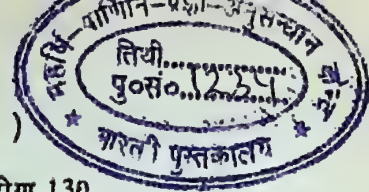 महर्षि-पाणिनि-प्रज्ञा-अनुसन्धान
तिथी..............
पु०सं०
)
भारती पुस्तकालय
130